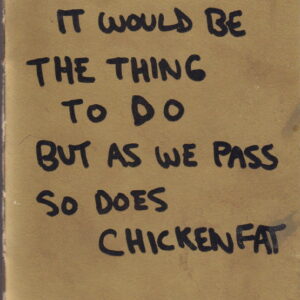 IT WOULD BE
THE THING
TO DO
BUT AS WE PASS
SO DOES
CHICKENFAT